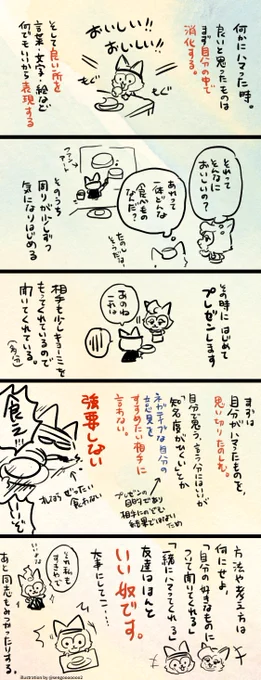 何かにハマった時。
良いと思ったものは
まず自分の中で
消化する。
おいしい!!
おいしい!!
もぐ
もぐ
そして良い所を
言葉・文字・絵など
何でもいいから表現する
それって
そんなに
おいしいの?
あれって
一体どんな
食べもの
なんだ?
たのし
そうだな
そのうち
周りが少しずつ
気になりはじめる
その時にはじめて
プレゼンします
あのね
これは
相手も少しキョーミを
もってくれているので
聞いてくれている。
まずは
自分がハマったものを、
思い切りたのしむ。
自分で思う、言う分にはいいが
「知名度がひくい」とか
ネガティブな自分の
意見を
すすめたい相手に
言わない。
プレゼンの
目的であり
相手にのぞむ
結果ではないため
強要しない
食え!!
方法や考え方は
何にせよ、
「自分の好きなものに
ついて聞いてくれる」
「一緒にハマってくれる」
友達はほんと
いい奴です。
大事にしてこ…
それ私も
すきだわ
あと同志もみつかったりする。